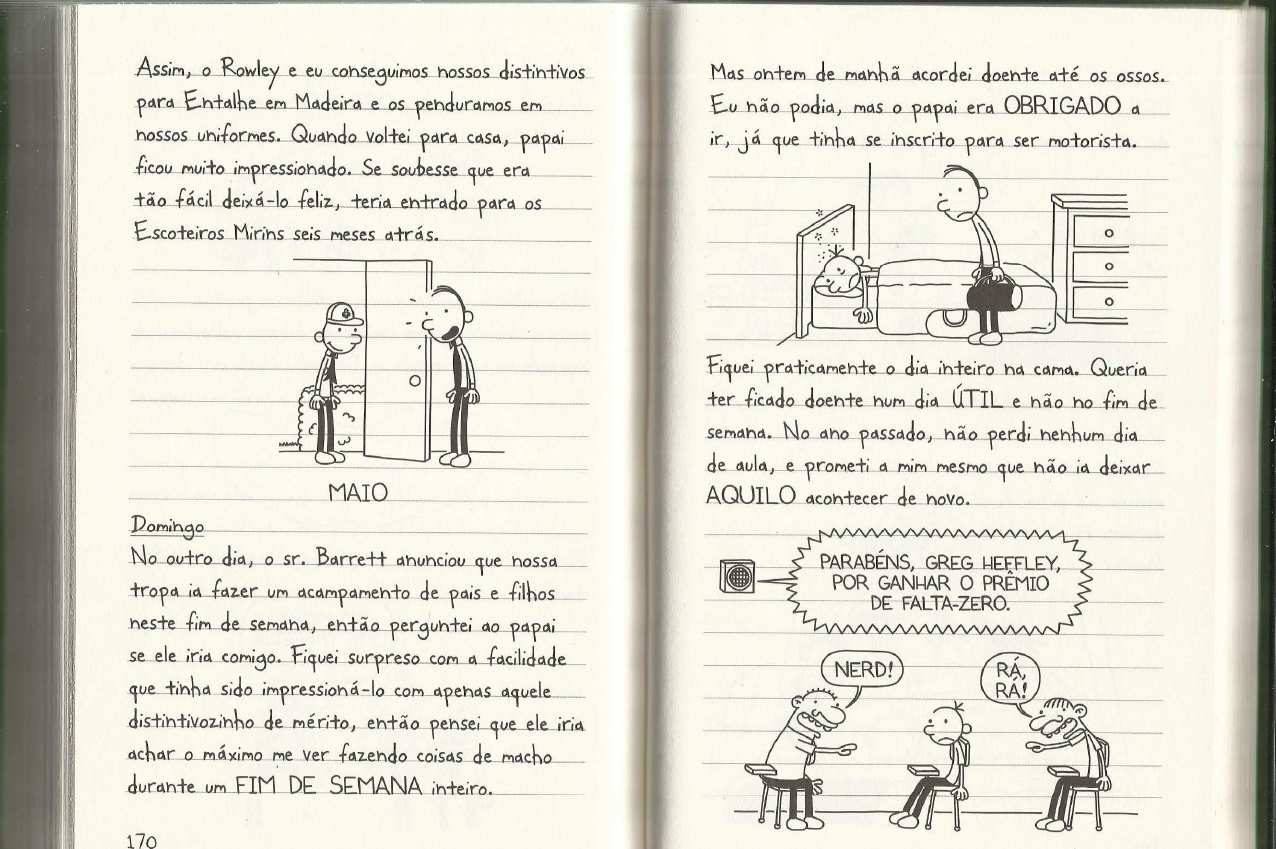 Assim, o Rowley e eu conseguimos nossos distintivos
para Entalhe em Madeira e os penduramos em
nossos uniformes. Quando voltei para casa, papai
ficou muito impressionado. Se soubesse que era
tão fácil deixá-lo feliz, teria entrado para os
Escoteiros Mirins seis meses atrás.
MAIO
Domingo
No outro dia, o sr. Barrett anunciou que nossa
tropa ia fazer um acampamento de pais e filhos
neste fim de semana, então perguntei ao papai
se ele iria comigo. Fiquei surpreso com a facilidade
que tinha sido impressioná-lo com apenas aquele
distintivozinho de mérito, então pensei que ele iria
achar o máximo me ver fazendo coisas de macho
durante um FIM DE SEMANA inteiro.
170
Mas ontem de manhã acordei doente até os ossos.
Eu não podia, mas o papai era OBRIGADO a
ir, já que tinha se inscrito para ser motorista.
Fiquei praticamente o dia inteiro na cama. Queria
ter ficado doente num dia ÚTIL e não no fim de
semana. No ano passado, não perdi nenhum dia
de aula, e prometi a mim mesmo que não ia deixar
AQUILO acontecer de novo.
PARABÉNS, GREG HEFFLEY,
POR GANHAR O PRÊMIO
DE FALTA-ZERO.
NERD!
RÁ,
RÁ!